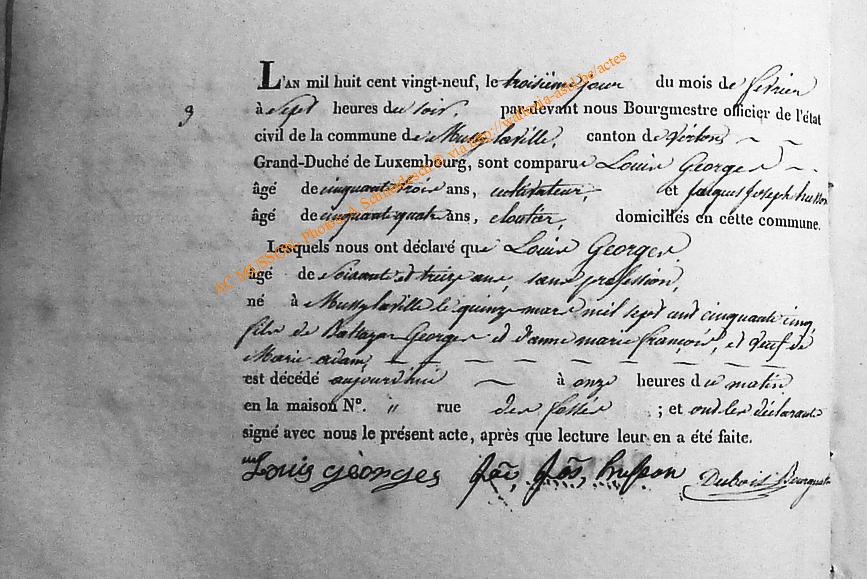 L'AN mil huit cent vingt-neuf, le troisième jour du mois de février
9 à Sept heures du soir, par-devant nous Bourgmestre officier de l'état
civil de la commune de Mussylaville, canton de Virton
Grand-Duché de Luxembourg, sont comparue Louis Georges
âgé de cinquante trois ans, cultivateur, et jacques joseph husson
âgé de cinquante quatre ans, cloutier, domiciliés en cette commune.
Lesquels nous ont déclaré que Louis Georges
âgé de Soixante et treize ans, sans profession,
né à Mussylaville le quinze mars mil sept cent cinquante cinq,
fils de Baltazar Georges et d'anne marie françois, et veuf de
Marie adam,
est décédé aujourd'hui à onze heures du matin
en la maison N°. " rue des fossés ; et ont les déclarants
signé avec nous le présent acte, après que lecture leur en a été faite.
Louis Georges husson Dubois
AC MUSSON - Photos A Schneidesch © via http://wallonia-asbl.be/actes